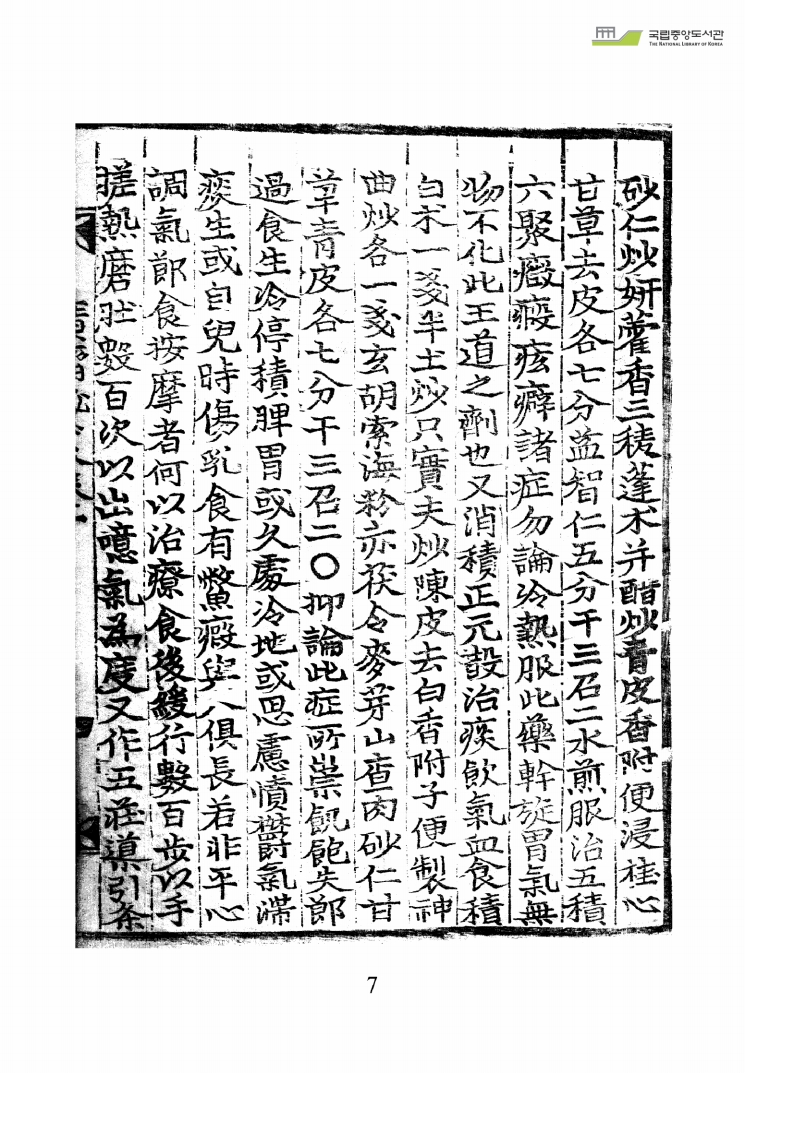 국립중앙도서관
THE NATIONAL LIBRARY OF KOREA
砂仁炒姸藿香三稜蓬朮并醋炒靑皮香附便浸桂心
甘草去皮各七分益智仁五分干三召二水煎服治五積
六聚癥瘕痃癖諸症勿論冷熱服此藥幹旋胃氣無
物不化此王道之劑也又消積正元散治痰飮氣血食積
白朮一戔半土炒只實夫炒陳皮去白香附子便製神
曲炒各一戔玄胡索海粉赤茯令麥芽山査肉砂仁甘
草靑皮各七分干三召二〇抑論此症所祟飢飽失節
過食生冷停積脾胃或久處冷地或思慮憤鬱氣滯
痰生或自兒時傷乳食有鱉瘕與人俱長若非平心
調氣節食按摩者何以治療食後緩行數百步以手
搓熱磨肚數百次以出噫氣爲度又作五莊導引條
7